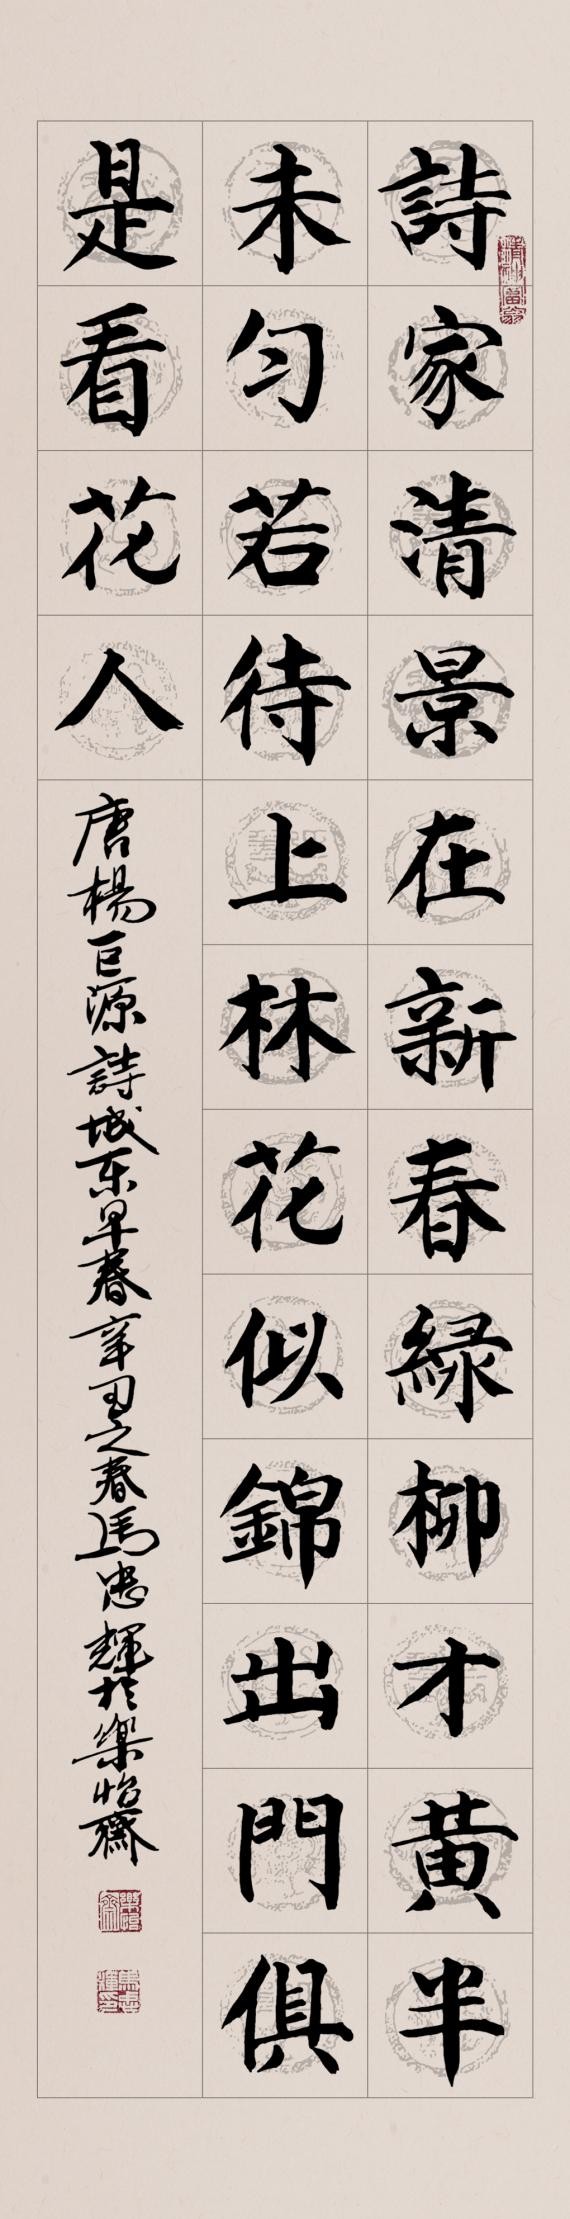 詩家清景在新春綠柳才黃半
未勻若待上林花似錦出門俱
是看花人
唐楊巨源詩城东早春辛丑之春馬忠輝於樂怡齋